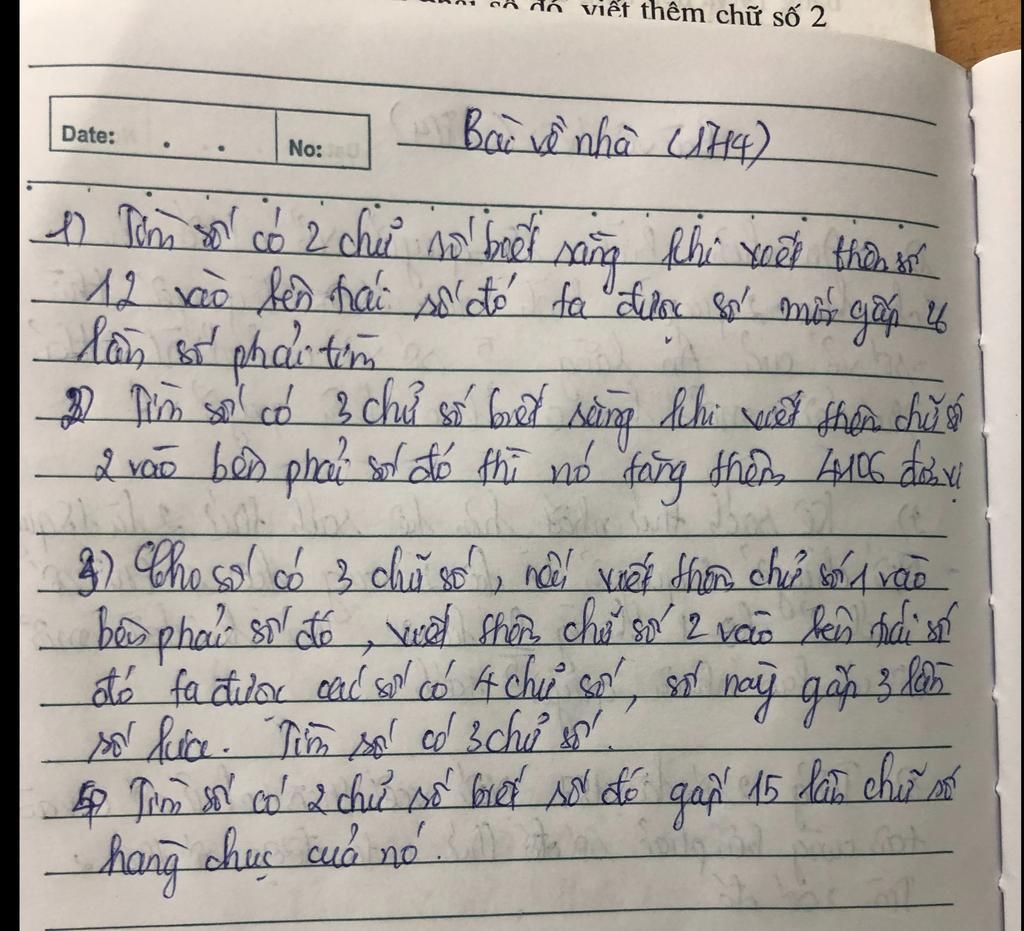 số đó, viết thêm chữ số 2
Date: . . No:
Bài về nhà (17/4)
1) Tìm số có 2 chữ số biết rằng khi viết thêm số
12 vào bên trái số đó ta được số mới gấp 26
lần số phải tìm
2) Tìm số có 3 chữ số biết rằng khi viết thêm chữ số
2 vào bên phải số đó thì nó tăng thêm 4106 đơn vị
3) Cho số có 3 chữ số, nếu viết thêm chữ số 1 vào
bên phải số đó, viết thêm chữ số 2 vào bên trái số
đó ta được các số có 4 chữ số, số này gấp 3 lần
số kia. Tìm số có 3 chữ số.
4) Tìm số có 2 chữ số biết số đó gấp 15 lần chữ số
hàng chục của nó.